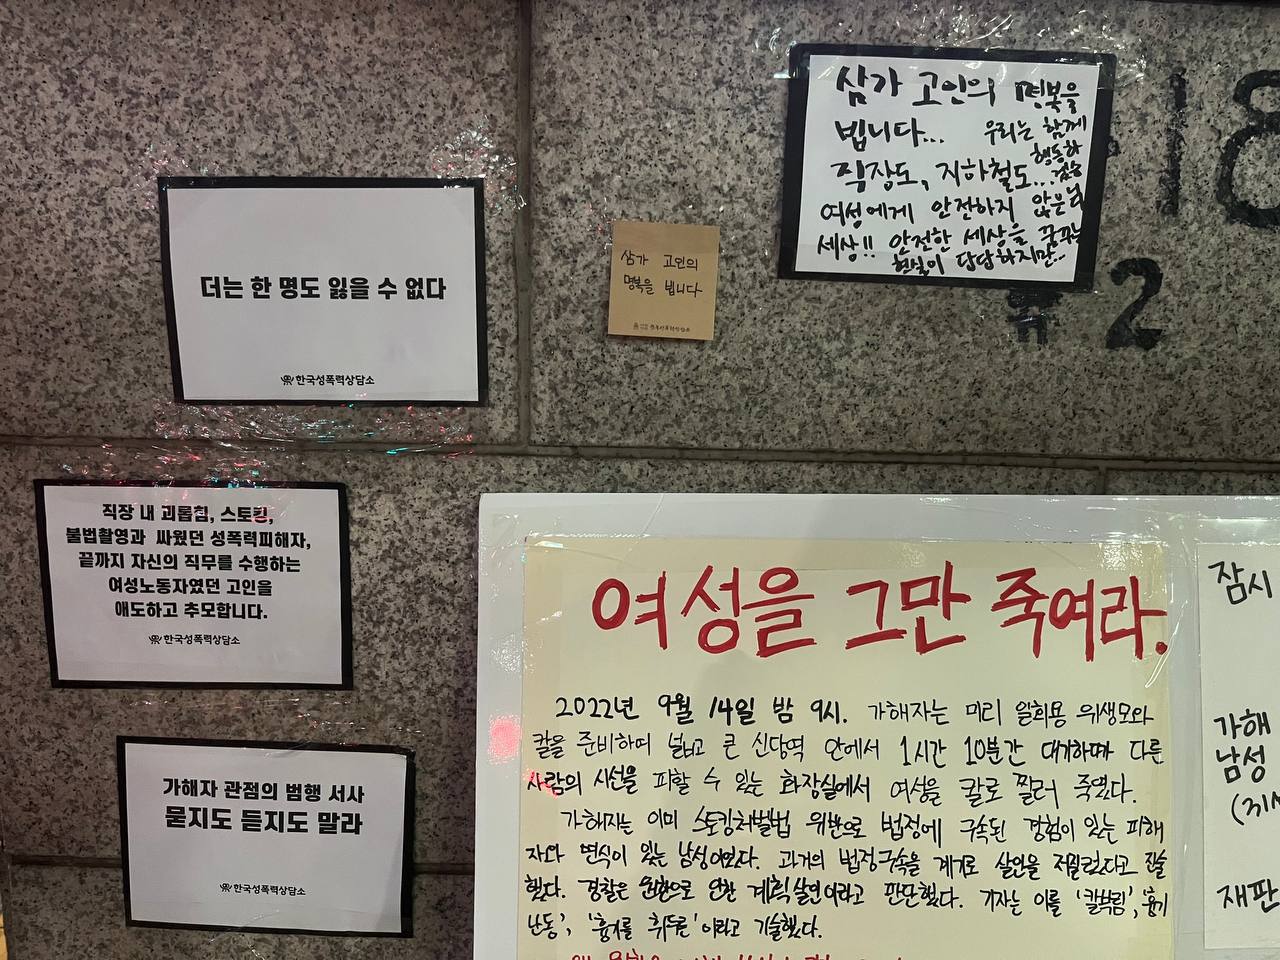 더는 한 명도 잃을 수 없다
한국성폭력상담소
직장 내 괴롭힘, 스토킹,
불법촬영과 싸웠던 성폭력피해자,
끝까지 자신의 직무를 수행하는
여성노동자였던 고인을
애도하고 추모합니다.
한국성폭력상담소
가해자 관점의 범행 서사
묻지도 듣지도 말라
한국성폭력상담소
삼가 고인의
명복을 빕니다
삼가 고인의 명복을
빕니다... 우리는 함께
행동하
직장도, 지하철도...
여성에게 안전하지 않은
세상!! 안전한 세상을 꿈꾸는
현실이 답답하지만..
18
#2
여성을 그만 죽여라.
2022년 9월 14일 밤 9시. 가해자는 미리 일회용 위생모와
칼을 준비하여 넓고 큰 신당역 안에서 1시간 10분간 대기하며 다른
사람의 시선을 피할 수 있는 화장실에서 여성을 칼로 찔러 죽였다.
가해자는 이미 스토킹처벌법 위반으로 법정에 구속된 경험이 있는 피해
자와 면식이 있는 남성이었다. 과거의 법정구속을 계기로 살인을 저질렀다고 진술
했다. 경찰은 원한으로 인한 계획살인이라고 판단했다. 기자는 이를 '칼부림', '흉기
난동', '흉기를 휘둘른' 이라고 기술했다.
잠시
가해
남성
재판